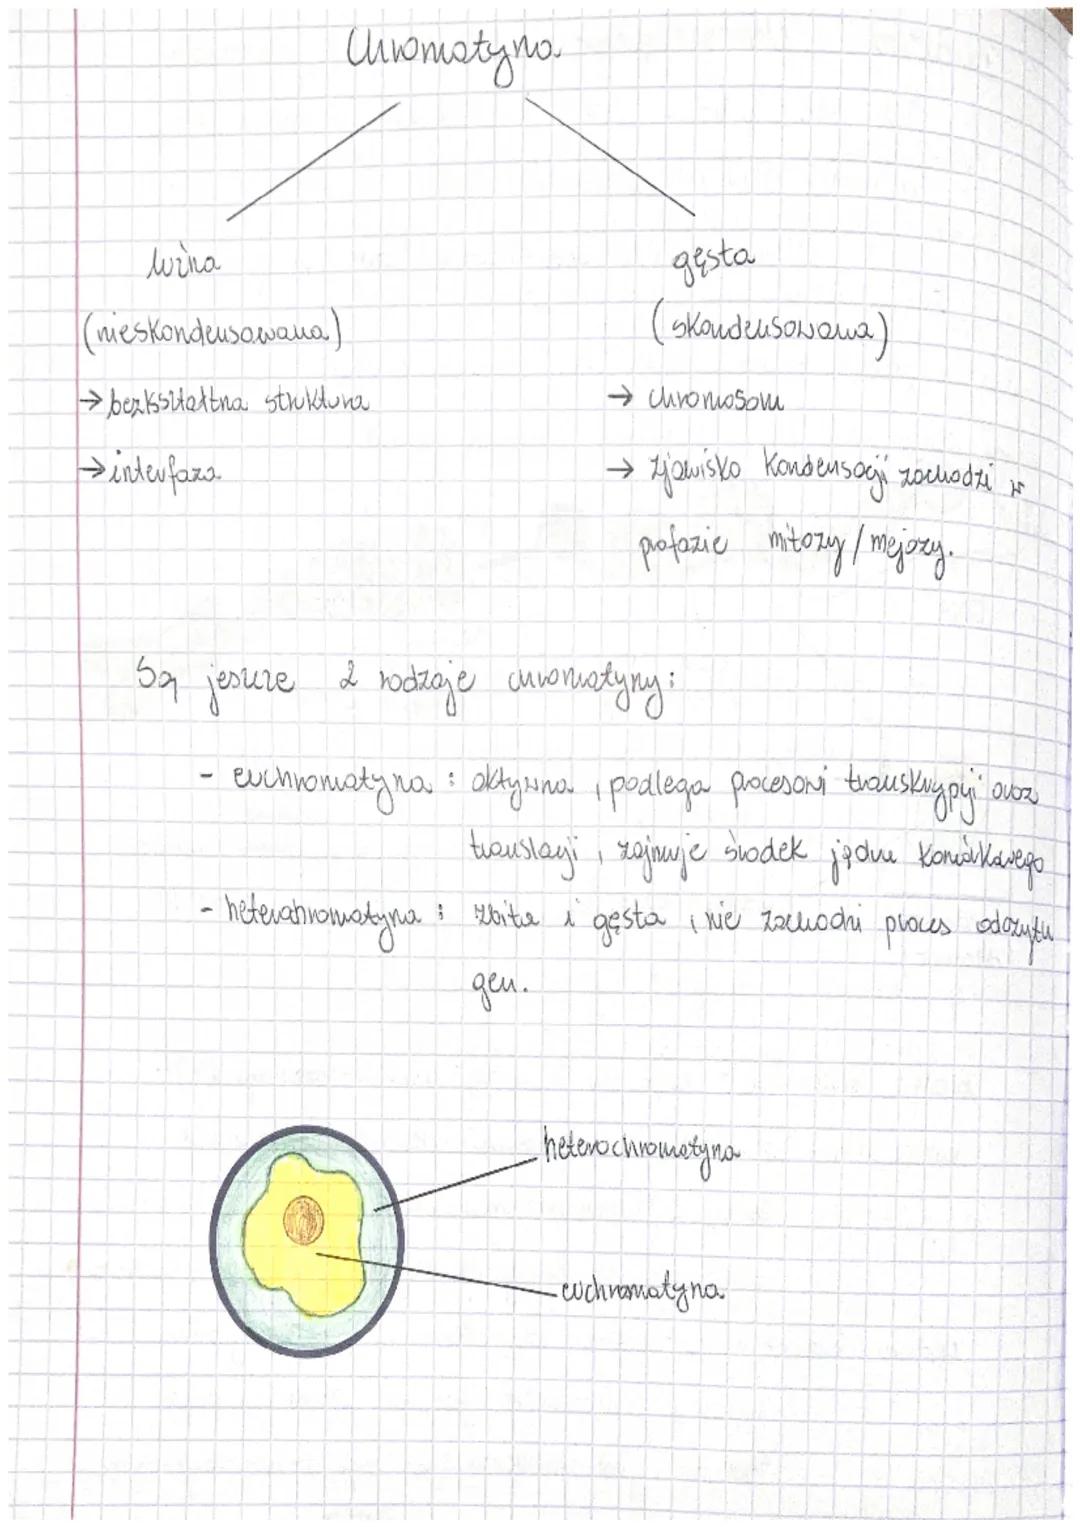 Chromatyna
luźna
gęsta
(nieskondensowana)
(skondensowana)
→ bezkształtna struktura
→ chromosom
→ interfaza
→ zjawisko kondensacji zachodzi w
profazie mitozy / mejozy.
Są jeszcze 2 rodzaje chromatyny:
- euchromatyna : aktywna , podlega procesowi transkrypcji oraz
translacji , zajmuje środek jądra komórkowego
- heterochromatyna : zbita i gęsta , nie zachodzi proces odczytu
gen.
heterochromatyna
euchromatyna